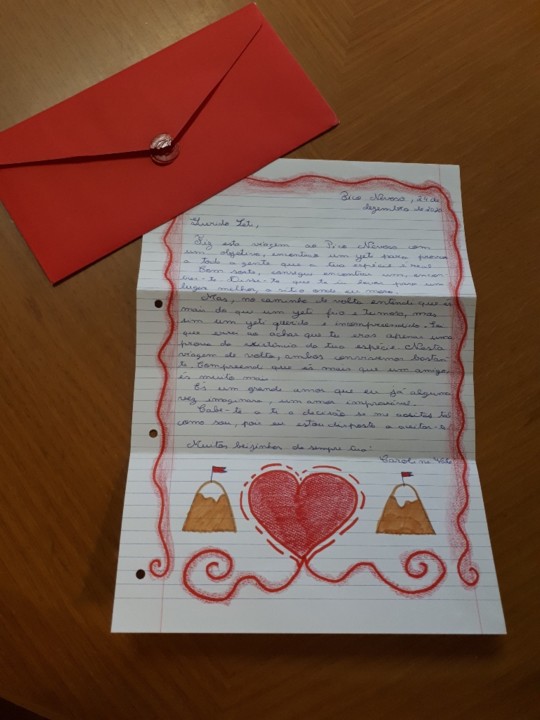 Pico Nevoso, de
dezembro de 2020
Querido Yeti,
Fiz esta viagem ao Pico Nevoso com
um objetivo, encontrar um yeti para provar
a toda a gente que a tua espécie é real.
Com sorte, consegui encontrar um, encon
trei-te. Disse-te que te ia levar para um
lugar melhor, o sítio onde eu moro.
Mas, no caminho de volta entendi que és
mais do que um yeti frio e temeroso, mas
sim um yeti querido e incompreendido. Sei
que errei ao achar que tu eras apenas uma
prova da existência da tua espécie. Nesta
viagem de volta, ambos conversamos bastan
te. Compreendi que és mais que um amigo,
és muito mais.
És um grande amor que eu já alguma
vez imaginara, um amor impossível.
Cabe-te a ti a decisão se me aceitas tal
como sou, pois eu estou disposta a aceitar-te.
Muitos beijinhos da sempre tua!
Caroline